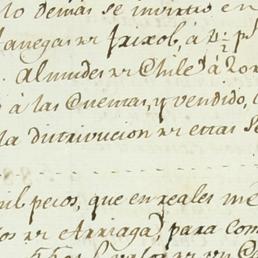 lo demas se invirtio en
fanegas de frixol, á 4½ ps
Almudes de Chile á 20 r
á las Cuentas, y vendido,
la distribucion de estas
mil pesos, que en reales
de Arriaga, para